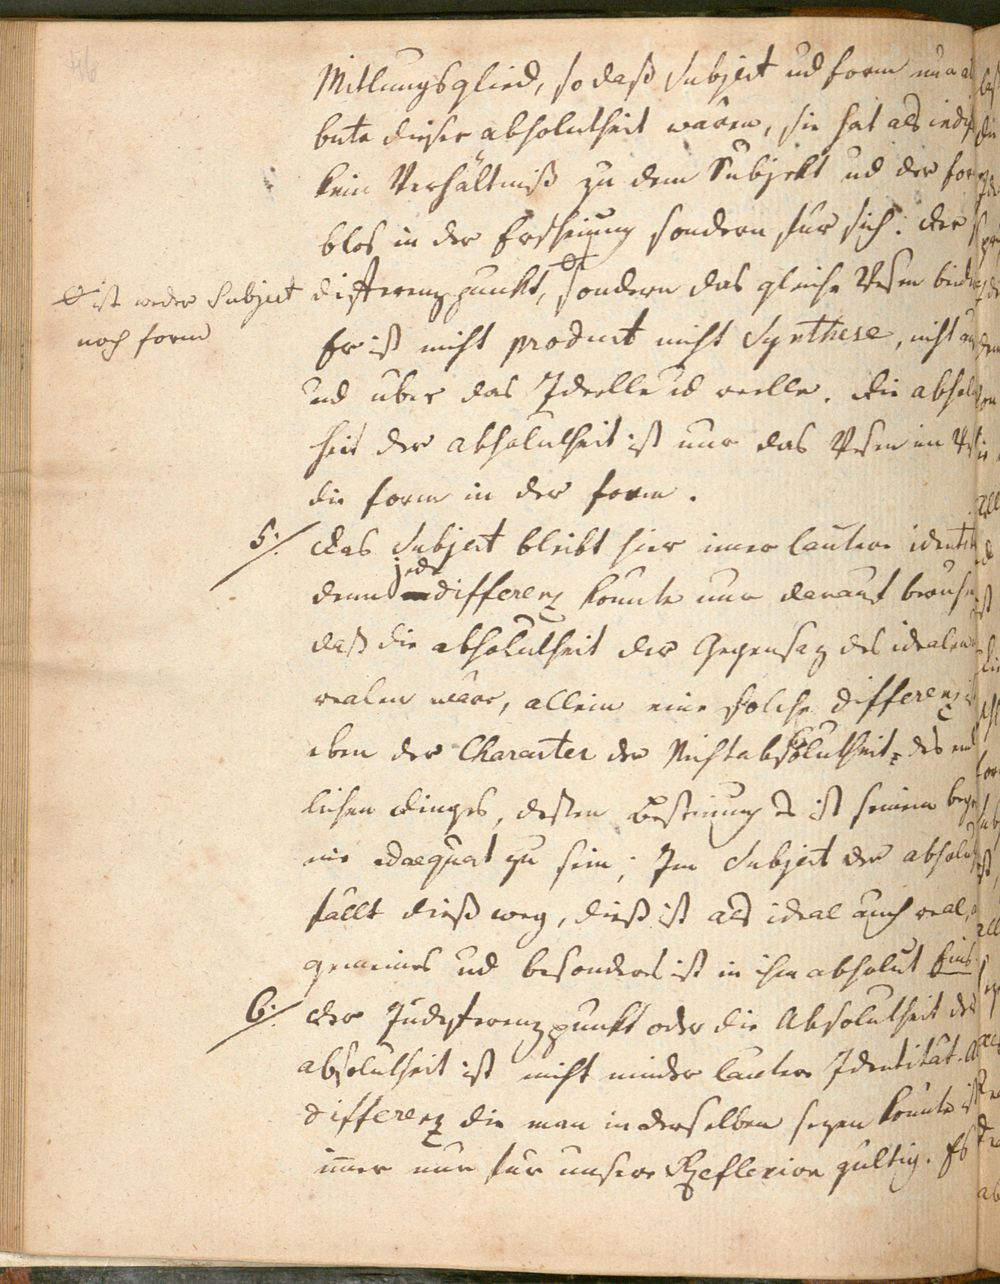 46
Mittlungsglied, so daß Subject ud form nur
bute dieser absolutheit wären, sie hat als
kein Verhältniß zu dem Subjekt ud der
blos in der Erscheinung sondern fur sich: der
differenzpunkt, sondern das gleiche Wesen
ist weder Subject
noch form
Er ist nicht product nicht Synthese, nicht
ud uber das Ideelle ud reelle. Die absolut
heit der absolutheit ist nur das Wesen im
die form in der form.
5. Das Subject bleibt hier imer lautere
denn jede differenz konnte nur darauf beruhen
daß die absolutheit der Gegensaz des idealen
realen wäre, allein eine solche differenz
eben der Character der Nichtabsolutheit, des end
lichen Dinges, dessen Bestimung es ist seinem
nie adaequat zu sein; Im Subject der absolut
fällt dieß weg, dieß ist als ideal auch real,
gemeines ud besonders ist in ihm absolut Eins
6. Der Indifferenzpunkt oder die Absolutheit der
absolutheit ist nicht minder lautere Identität.
differenz die man in derselben sezen konnte ist
imer nur fur unsere Reflexion gultig. Es